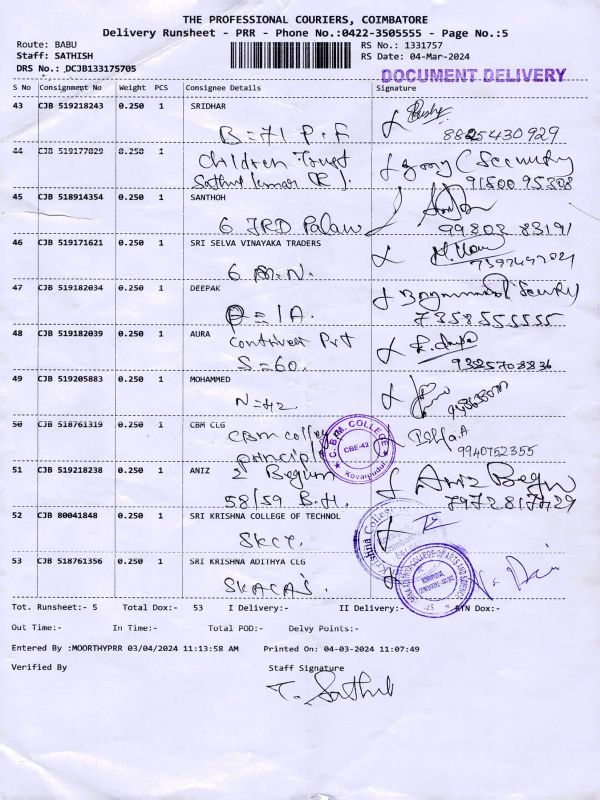 THE PROFESSIONAL COURIERS, COIMBATORE
Delivery Runsheet - PRR - Phone No.:0422-3505555 - Page No.:5
Route: BABU RS No.: 1331757
Staff: SATHISH RS Date: 04-Mar-2024
DRS No.: DCJB133175705
DOCUMENT DELIVERY
S No Consignment No Weight PCS Consignee Details Signature
43 CJB 519218243 0.250 1 SRIDHAR
B=71 P.F 8825430929
44 CJB 519177029 0.250 1 Children Trust (Security
Sathish kumar 91500 95308
45 CJB 518914354 0.250 1 SANTHOH
6 JRD Palaw 99803 83191
46 CJB 519171621 0.250 1 SRI SELVA VINAYAKA TRADERS
6 M.N.
47 CJB 519182034 0.250 1 DEEPAK
=1A. 7358555555
48 CJB 519182039 0.250 1 AURA
Pvt
S=60. 9325703836
49 CJB 519205883 0.250 1 MOHAMMED
N=42
50 CJB 518761319 0.250 1 CBM CLG
cbm colleg 9940752355
principle
C.B.M. COLLEGE
CBE-42
Kovaipudur
51 CJB 519218238 0.250 1 ANIZ
2 Begum Aniz Begu
58/59 B.H. 7972817729
52 CJB 80041848 0.250 1 SRI KRISHNA COLLEGE OF TECHNOL
SKCT.
53 CJB 518761356 0.250 1 SRI KRISHNA ADITHYA CLG
SKACAS.
Tot. Runsheet:- 5 Total Dox:- 53 I Delivery:- II Delivery:- RTN Dox:-
Out Time:- In Time:- Total POD:- Delvy Points:-
Entered By :MOORTHYPRR 03/04/2024 11:13:58 AM Printed On: 04-03-2024 11:07:49
Verified By Staff Signature
T. Sathish